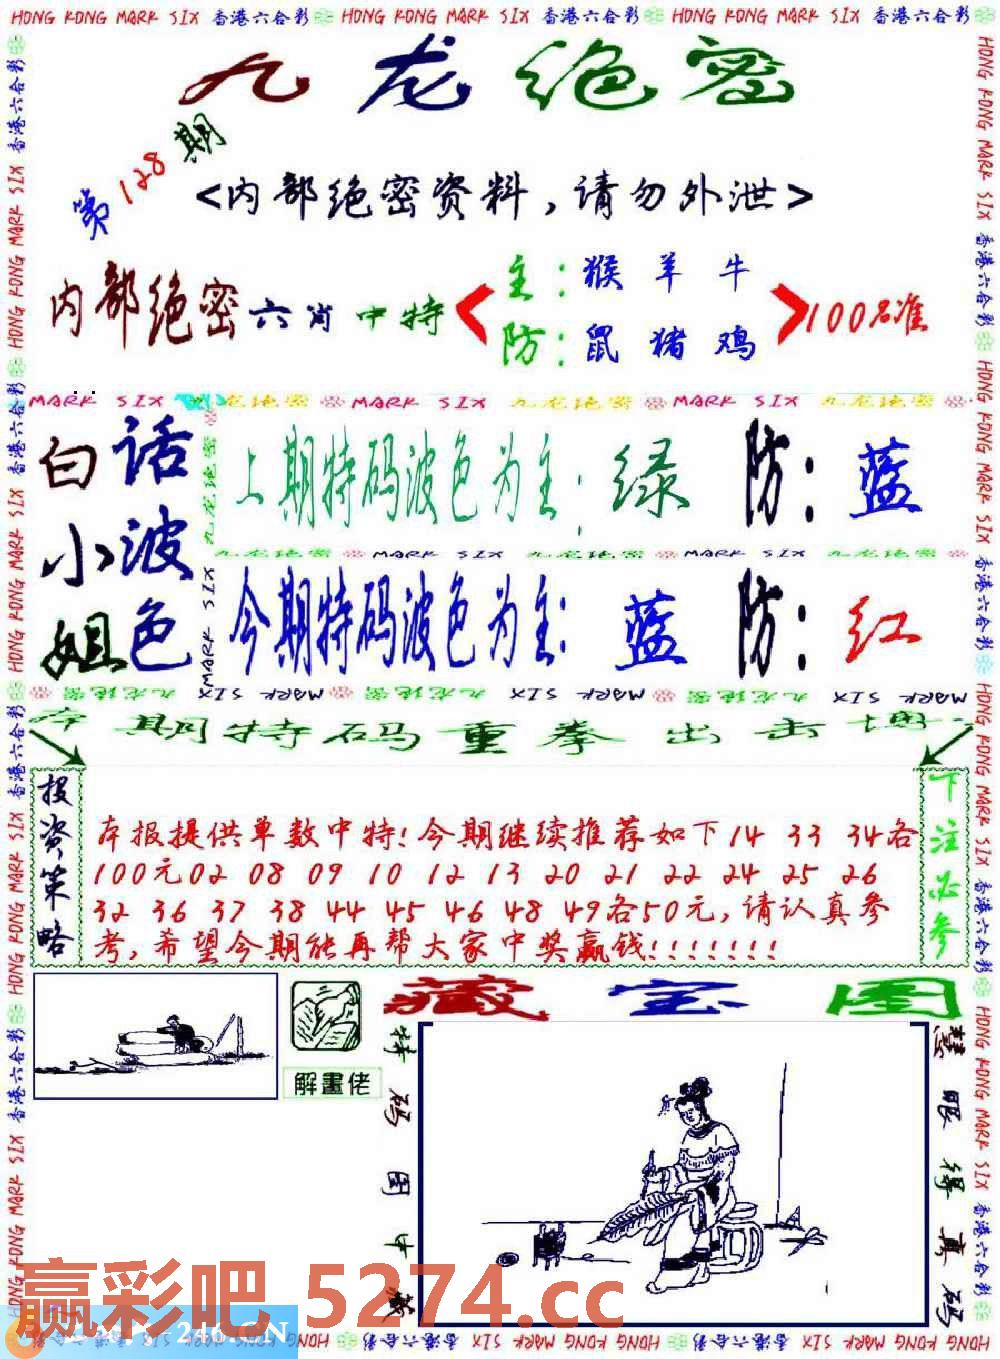 HONG KONG MARK SIX 香港六合彩 HONG KONG MARK SIX 香港六合彩 HONG KONG MARK SIX 香港六合彩
九龙绝密
第128期
<内部绝密资料,请勿外泄>
内部绝密六肖中特
主:猴羊牛
防:鼠猪鸡
100%准
MARK SIX 九龙绝密 MARK SIX 九龙绝密 MARK SIX 九龙绝密
白小姐
话波色
上期特码波色为主:绿 防:蓝
九龙绝密 MARK SIX 九龙绝密 MARK SIX 九龙绝密
今期特码波色为主:蓝 防:红
本期特码重拳出击
投资策略
本报提供单数中特!今期继续推荐如下14 33 34各
100元02 08 09 10 12 13 20 21 22 24 25 26
32 36 37 38 44 45 46 48 49各50元,请认真参
考,希望今期能再帮大家中奖赢钱!!!!!!!
下注必参
解畫佬
藏宝图
特码图中藏
慧眼得真码
赢彩吧 5274.cc
246T.CN